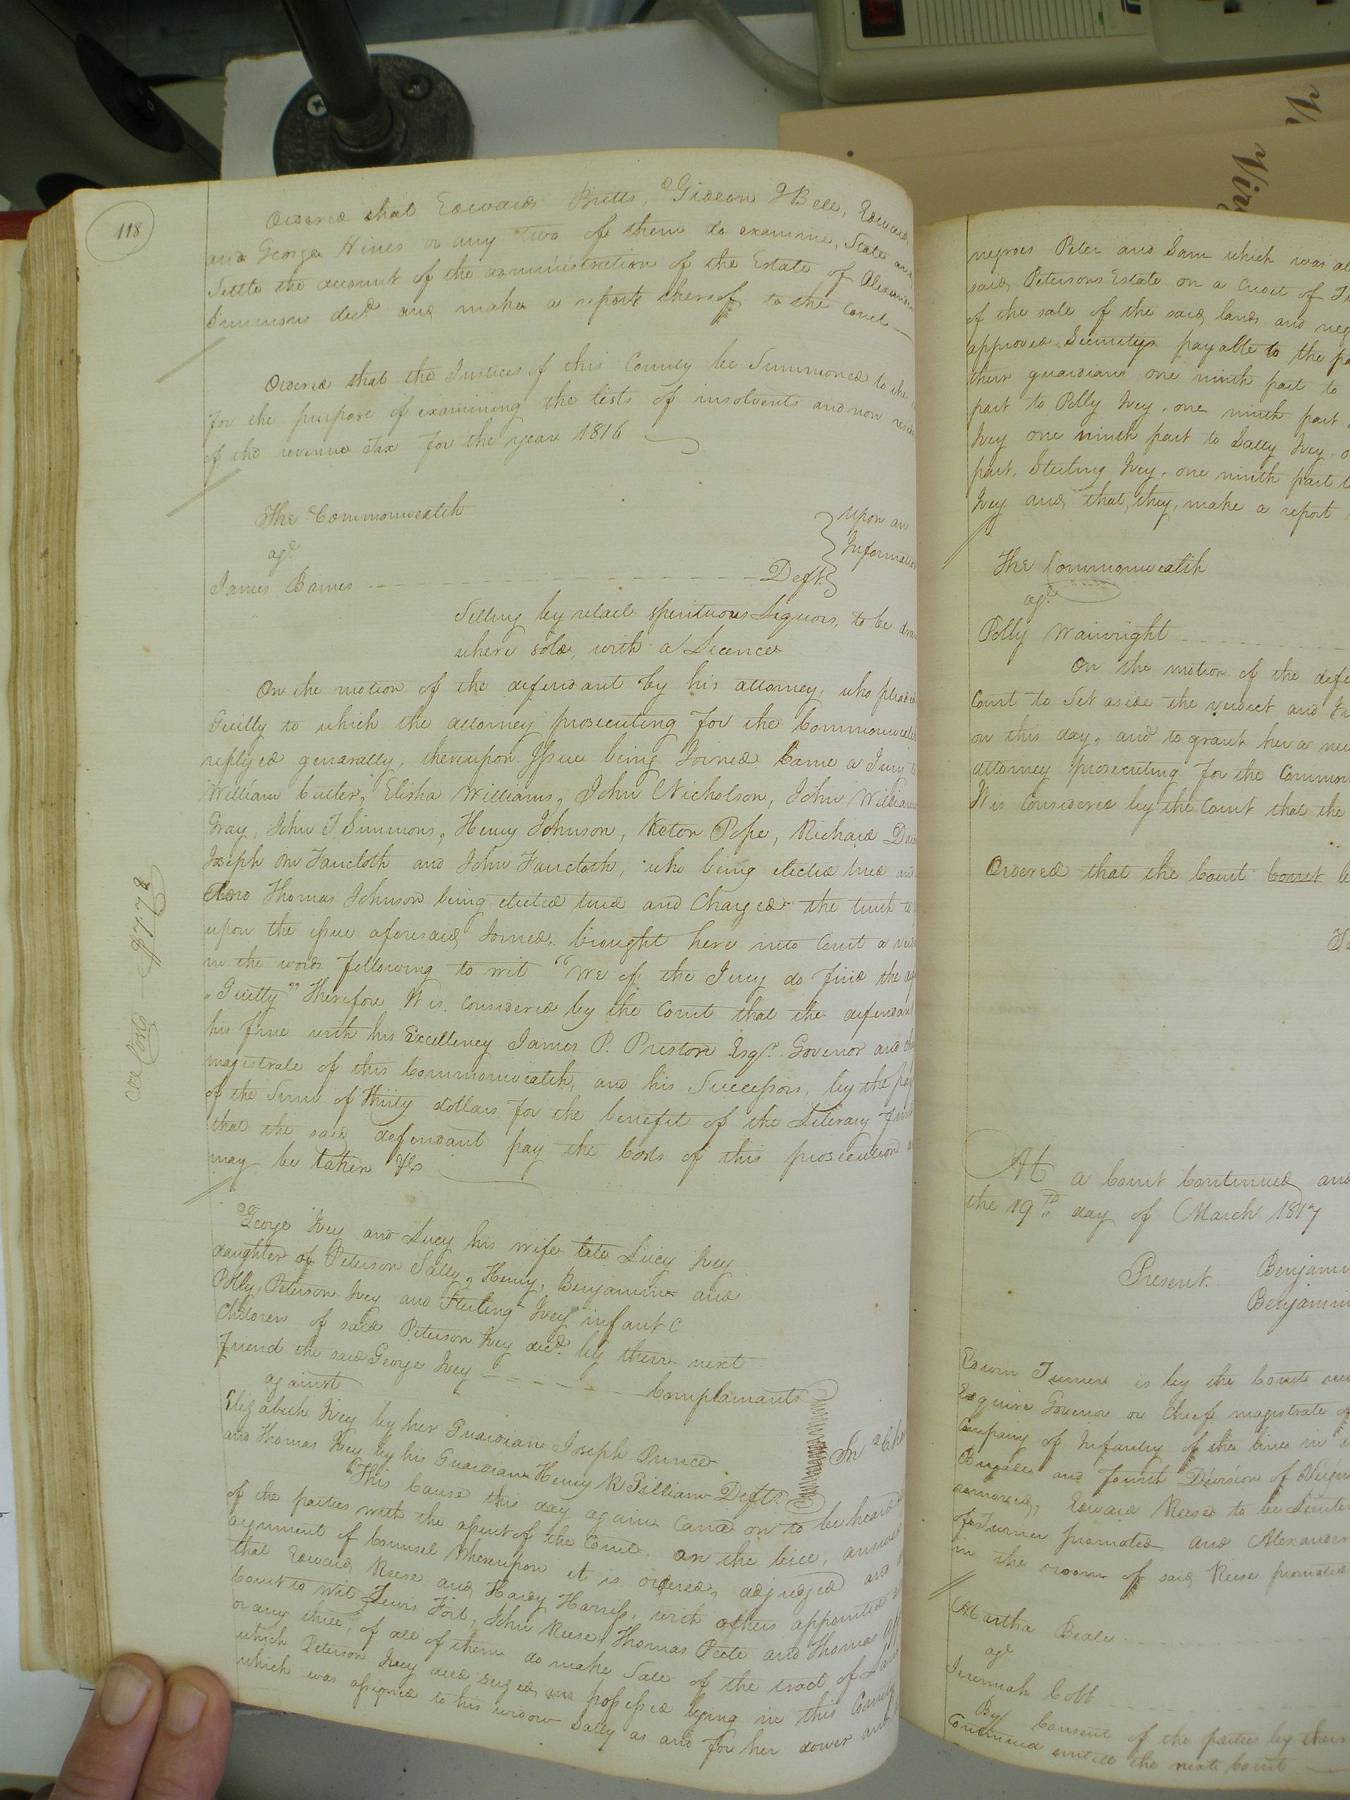 118
Ordered that Edwards Butts, Gideon J Bell, Edward
and George Hines or any two of them to examine, State and
Settle the account of the administration of the Estate of Alexander
Simmons decd. and make a report thereof to the Court
Ordered that the Justices of this County be Summoned to the
for the purpose of examining the lists of insolvents and non
of the revenue Tax for the year 1816
The Commonwealth
agt.
James Barnes Deft.
upon an
Information
Selling by retail spirituous Liquors, to be
where sold, with a Licence
On the motion of the defendant by his attorney, who
Guilty to which the attorney prosecuting for the Commonwealth
replyed generally, thereupon Issue being Joined Came a Jury
William Cutler, Elisha Williams, John Nicholson, John
Gray, John T Simmons, Henry Johnson, Pope, Richard
Joseph and John who being elected tried and
Thomas Johnson being elected tried and Charged the truth to
upon the issue aforesaid Joined, brought here into Court a
in the words following to wit "We of the Jury do find the
"Guilty" Therefore It is Considered by the Court that the defendant
his fine with his Excellency James P. Preston Esqr. Govenor and
magistrate of this Commonwealth, and his Successors, by the
of the Sum of thirty dollars for the benefit of the Literary
that the said defendant pay the Costs of this prosecution
may be taken &c
Costs $7.72
George Ivey and Lucy his wife late Lucy Ivey
daughter of Peterson Sally, Henry, Benjamin and
Polly, Peterson Ivey and Sterling Ivey infant
Children of said Peterson Ivey decd. by their next
friend the said George Ivey Complainants
against
Elizabeth Ivey by her Guardian Joseph Prince
and Thomas Ivey by his Guardian Henry R Pilliam Defts.
In
This Cause this day again Came on to be heard
of the parties with the assent of the Court, on the bill,
argument of Counsel Whereupon it is ordered, adjudged and
that Edward Reese and Hardy Harriss, with others appointed
Court to wit Lewis Fort, John Reese, Thomas Peete and Thomas
or any three, of all of them do make Sale of the tract of
which Peterson Ivey died seized and possessed lying in this County
which was assigned to his widow Sally as and for her dower and
negroes Peter and Sam which was
said Petersons Estate on a Credit of
of the sale of the said land and
approved Security payable to the
their guardians one ninth part to
part to Polly Ivey, one ninth part
Ivey one ninth part to Sally Ivey
part, Sterling Ivey, one ninth part
Ivey and, that, they, make a report
The Commonwealth
agt.
Polly Wainright
On the motion of the
Court to Set aside the verdict and
on this day, and to grant her a
attorney prosecuting for the
It is Considered by the Court that the
Ordered that the Court Court
At a Court Continued and
the 19th day of March 1817
Present
Edwin Turner is by the Court
Esquire Govenor or Chief magistrate
Company of Infantry of the line in
Brigade and fourth Division of
removed, Edward Reese to be
of Turner promoted and Alexander
in the room of said Reese promoted
Martha Beale
agt
Jeremiah Cobb
By Consent of the parties by their
Continued untill the next Court